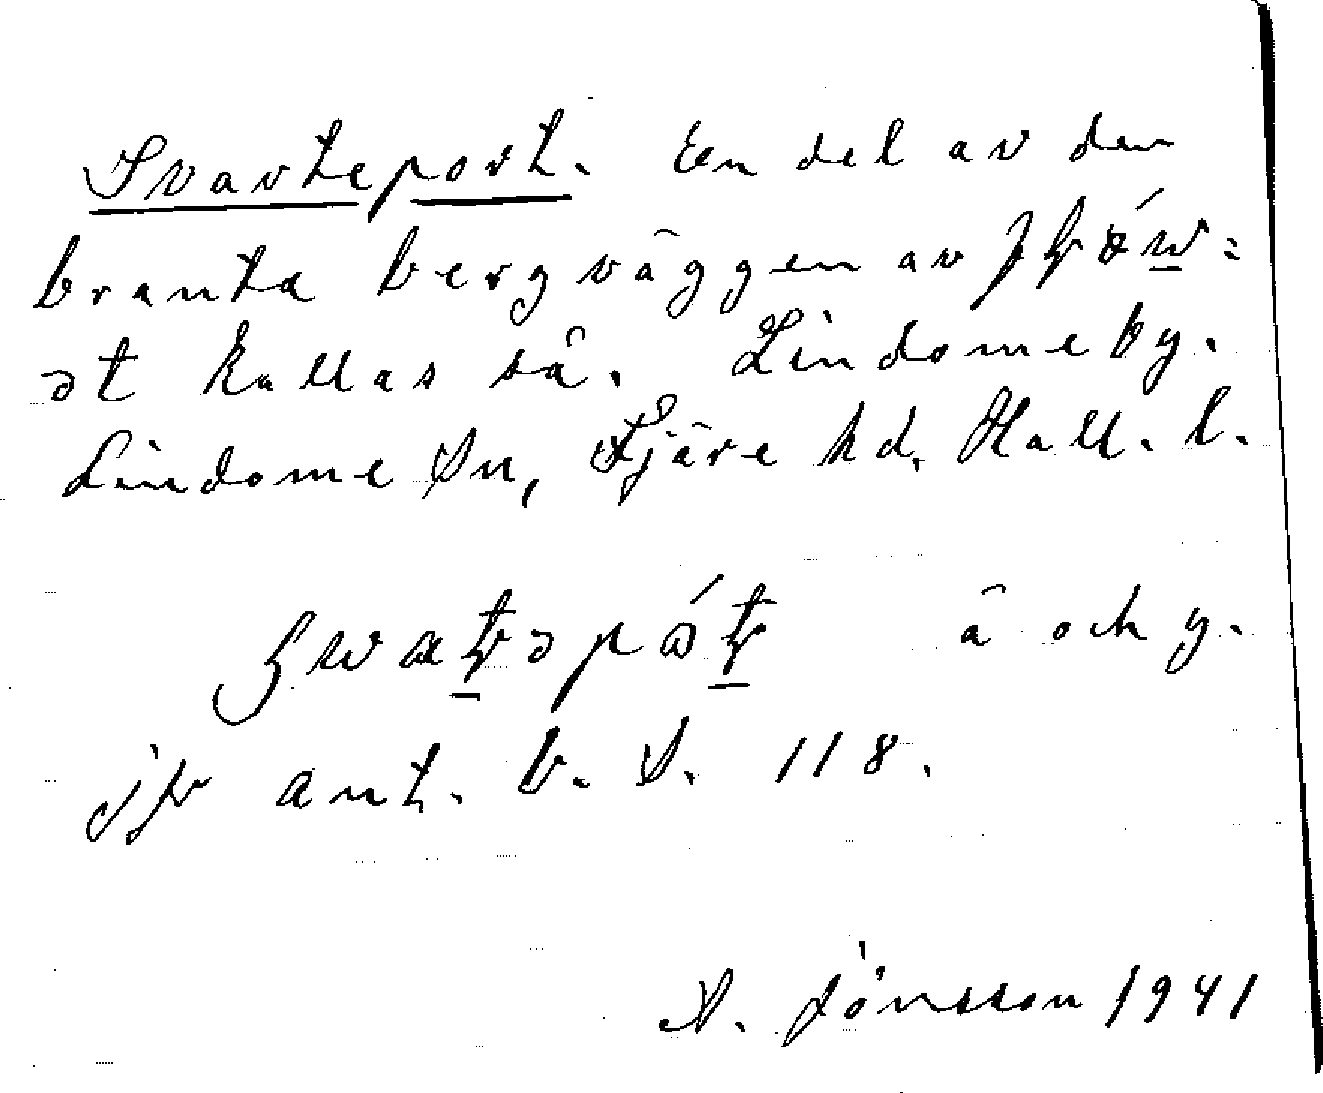 Svarteport. En del av den
branta bergväggen av
ət kallas så. Lindome by.
Lindome Sn, Fjäre hd, Hall. l.
ä och y.
jfr ant. b. S. 118.
A. Jönsson 1941